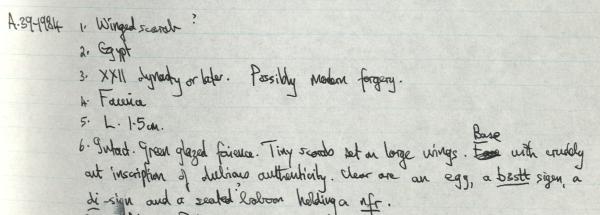 A.39-1984 1. Winged scarab ?
2. Egypt
3. XXII dynasty or later. Possibly modern forgery.
4. Faience
5. L. 1.5cm.
6. Intact. Green glazed faience. Tiny scarab set on large wings. Base with crudely
cut inscription of dubious authenticity. Clear are an egg, a b3stt sigen, a
di-sign and a seated baboon holding a nfr.